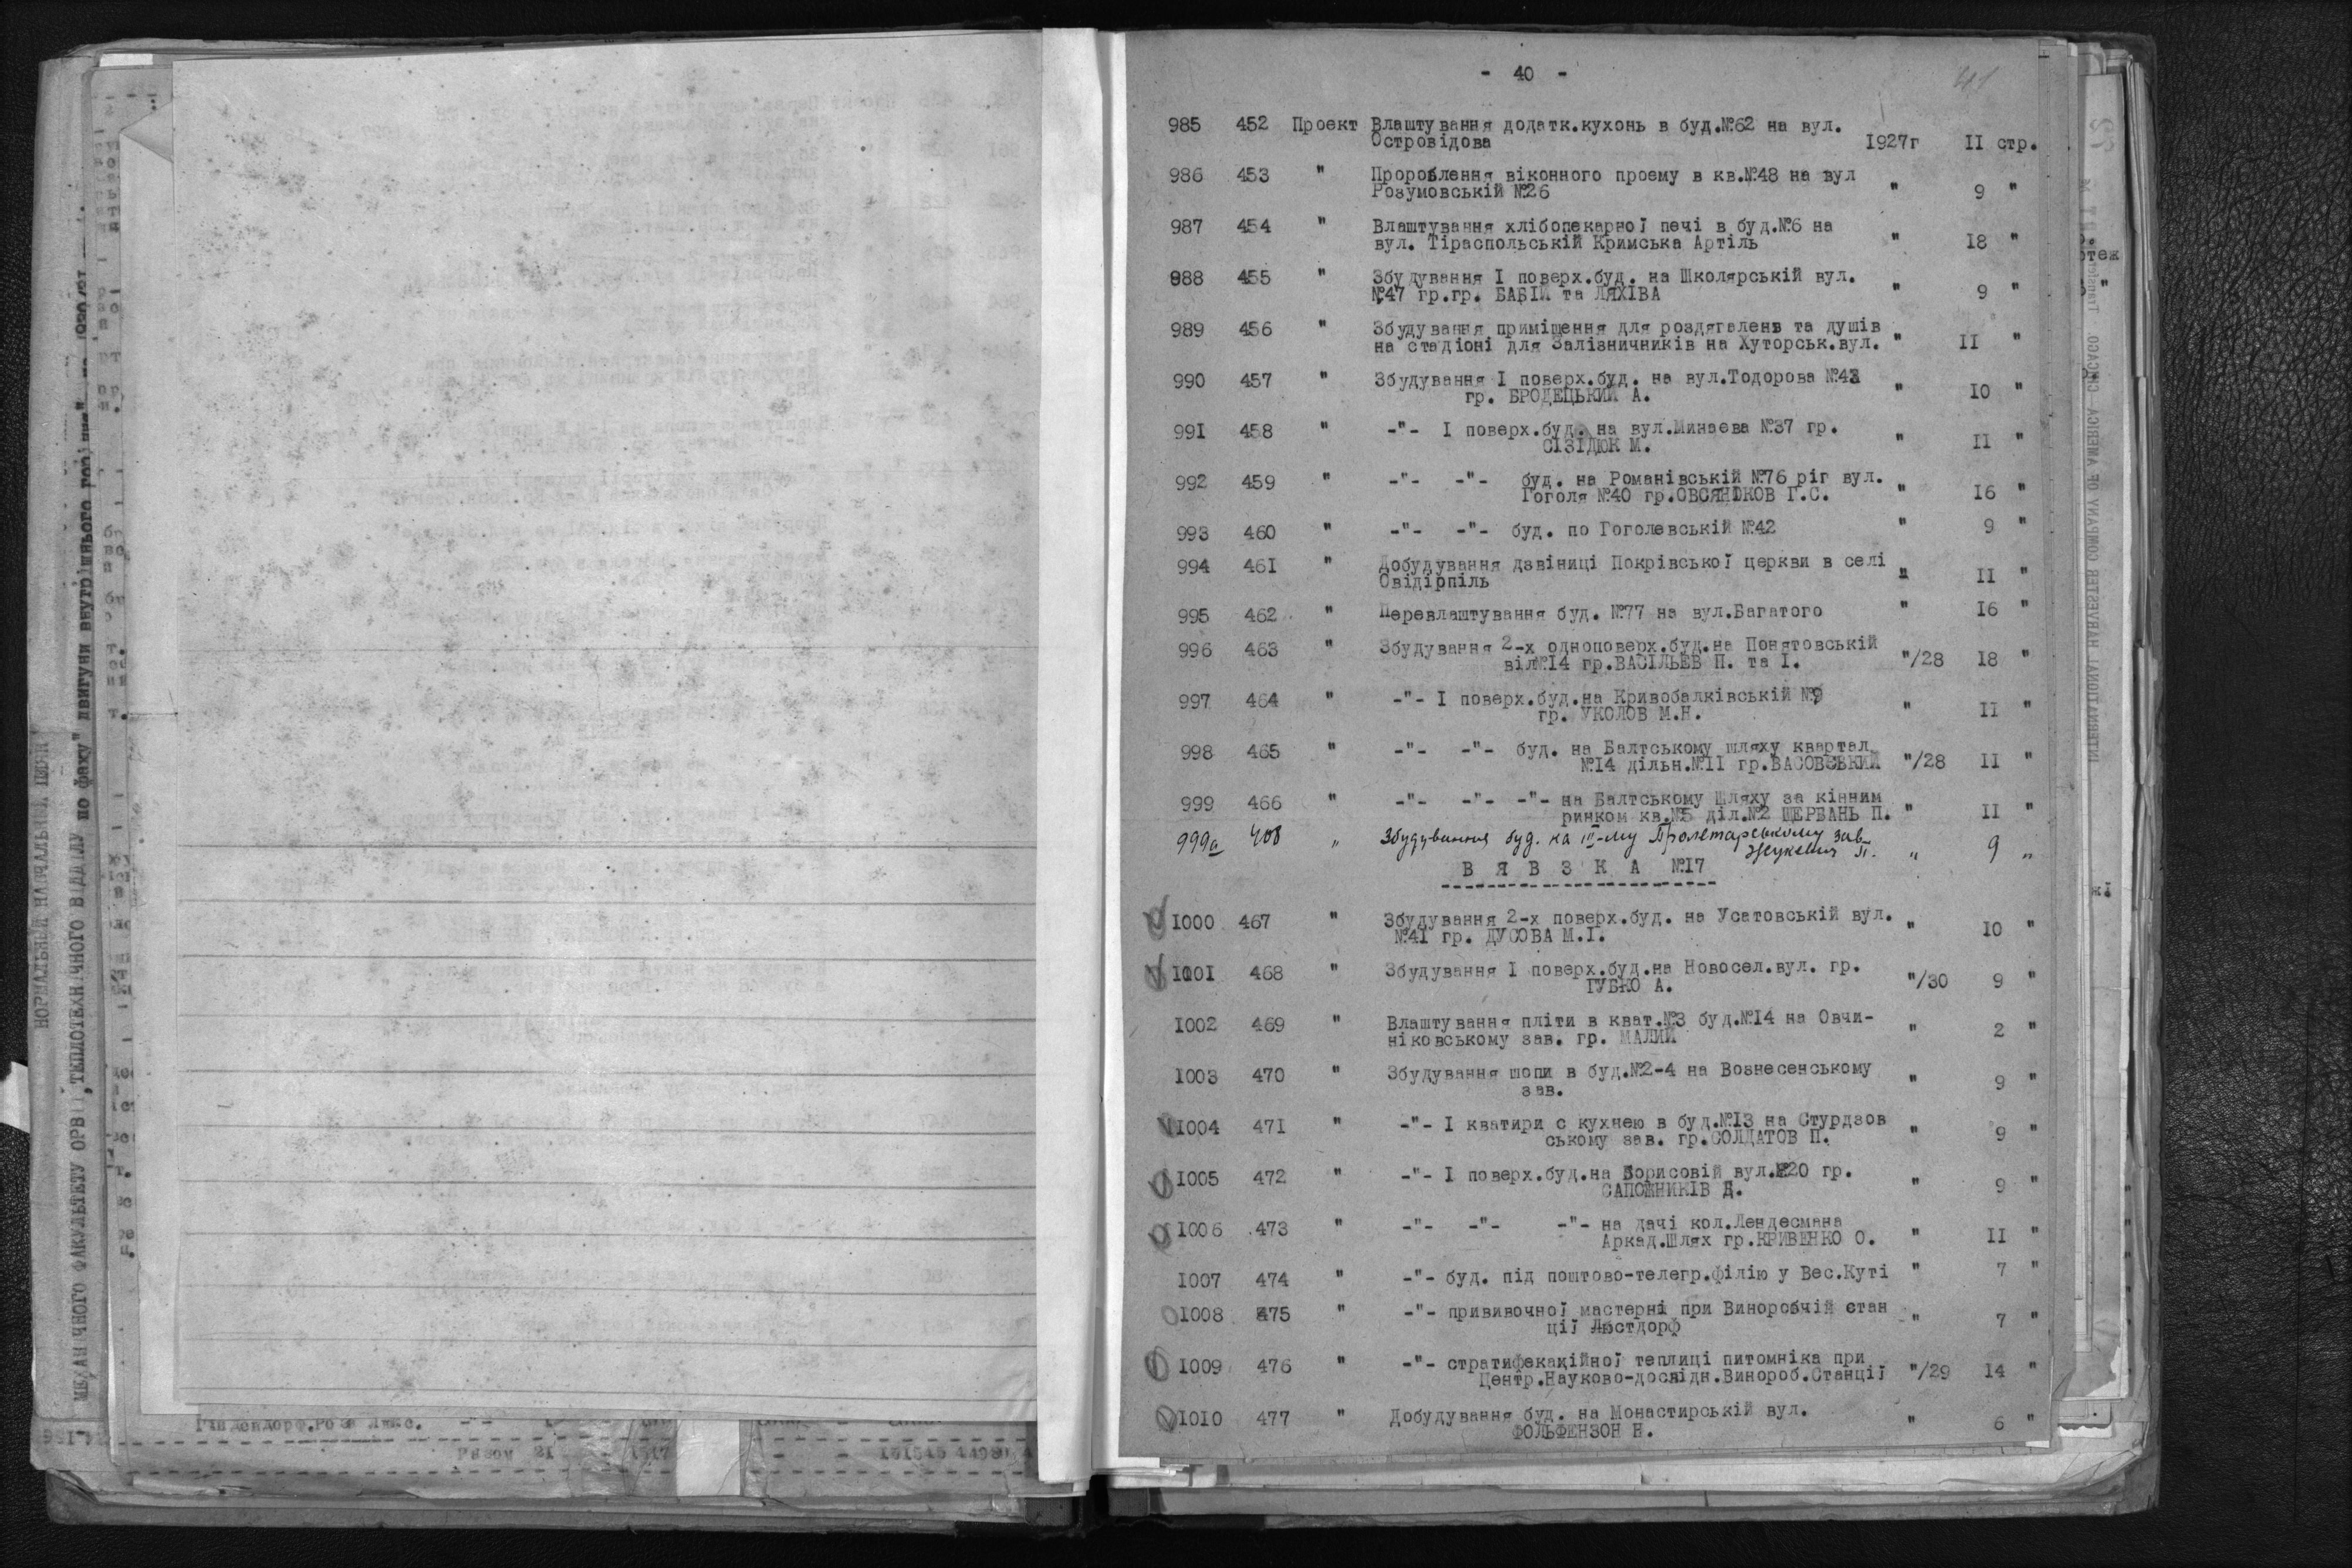 - 40 -
41
985 452 Проект Влаштування додатк.кухонь в буд.№62 на вул.
Островідова 1927г II стр.
986 453 " Пророблення віконного проему в кв.№48 на вул
Розумовській №26 " 9 "
987 454 " Влаштування хлібопекарної печі в буд.№6 на
вул. Тіраспольській Кримська Артіль " I8 "
988 455 " Збудування I поверх.буд. на Школярській вул.
№47 гр.гр. БАБІЙ та ЛЯХІВА " 9 "
989 456 " Збудування приміщення для роздягалень та душів
на стадіоні для Залізничників на Хуторськ.вул. " II "
990 457 " Збудування I поверх.буд. на вул.Тодорова
гр. БРОДЕЦЬКИЙ А. " I0 "
99I 458 " -"- I поверх.буд. на вул.Минаева №37 гр.
СІЗІДЮК М. " II "
992 459 " -"- -"- буд. на Романівській №76 ріг вул.
Гоголя №40 гр.ОВСЯНІКОВ Г.С. " I6 "
993 460 " -"- -"- буд. по Гоголевській №42 " 9 "
994 46I " Добудування дзвіниці Покрівської церкви в селі
Овідіпіль " II "
995 462 " Перевлаштування буд. №77 на вул.Багатого " I6 "
996 463 " Збудування 2-х одноповерх.буд.на Понятовській
віл№I4 гр.ВАСІЛЬЕВ П. та І. "/28 I8 "
997 464 " -"- I поверх.буд.на Кривобалківській №9
гр. УКОЛОВ М.Н. " II "
998 465 " -"- -"- буд. на Балтському шляху квартал
№I4 дільн.№II гр.ВАСОВСЬКИЙ "/28 II "
999 466 " -"- -"- -"- на Балтському Шляху за кінним
ринком кв.№5 діл.№2 ЩЕРБАНЬ П. " II "
999а 408 " Збудування буд. на III-му Пролетарському зав-
П. " 9 "
В Я В З К А №I7
I000 467 " Збудування 2-х поверх.буд. на Усатовській вул.
№4I гр. ДУСОВА М.І. " I0 "
I00I 468 " Збудування I поверх.буд.на Новосел.вул. гр.
ГУБКО А. "/30 9 "
I002 469 " Влаштування пліти в кват.№3 буд.№I4 на Овчи-
ніковському зав. гр. МАЛИЙ " 2 "
I003 470 " Збудування шопи в буд.№2-4 на Вознесенському
зав. " 9 "
I004 47I " -"- I кватири с кухнею в буд.№I3 на Стурдзов
ському зав. гр.СОЛДАТОВ П. " 9 "
I005 472 " -"- I поверх.буд.на Борисовій вул.№20 гр.
САПОЖНИКІВ Д. " 9 "
I006 473 " -"- -"- -"- на дачі кол.Лендесмана
Аркад.Шлях гр.КРИВЕНКО О. " II "
I007 474 " -"- буд. під поштово-телегр.філію у Вес.Куті " 7 "
I008 475 " -"- прививочної мастерні при Виноробчій стан
ції Люстдорф " 7 "
I009 476 " -"- стратифекаційної теплиці питомніка при
Центр.Науково-дослідн.Винороб.Станції "/29 I4 "
I0I0 477 " Добудування буд. на Монастирській вул.
ФОЛЬФЕНЗОН Н. " 6 "
INTERNATIONAL HARVESTER COMPANY OF AMERICA CHICAGO